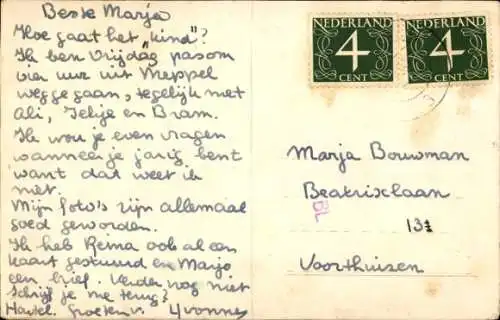 Beste Marja
Hoe gaat het "kind"?
Ik ben Vrijdag pas om
vier uur uit Meppel
weggegaan, tegelijk met
Ali, Jelije en Bram.
Ik wou je even vragen
wanneer je jarig bent
want dat weet ik
niet.
Mijn foto's zijn allemaal
goed geworden.
Ik heb Reina ook al een
kaart gestuurd en Marjo
een brief. Verder nog niet
Schrijf je me terug?
Hartel. Groeten v. Yvonne
NEDERLAND
4
CENT
NEDERLAND
4
CENT
Marja Bouwman
Beatrixlaan
131
BL
Voorthuizen